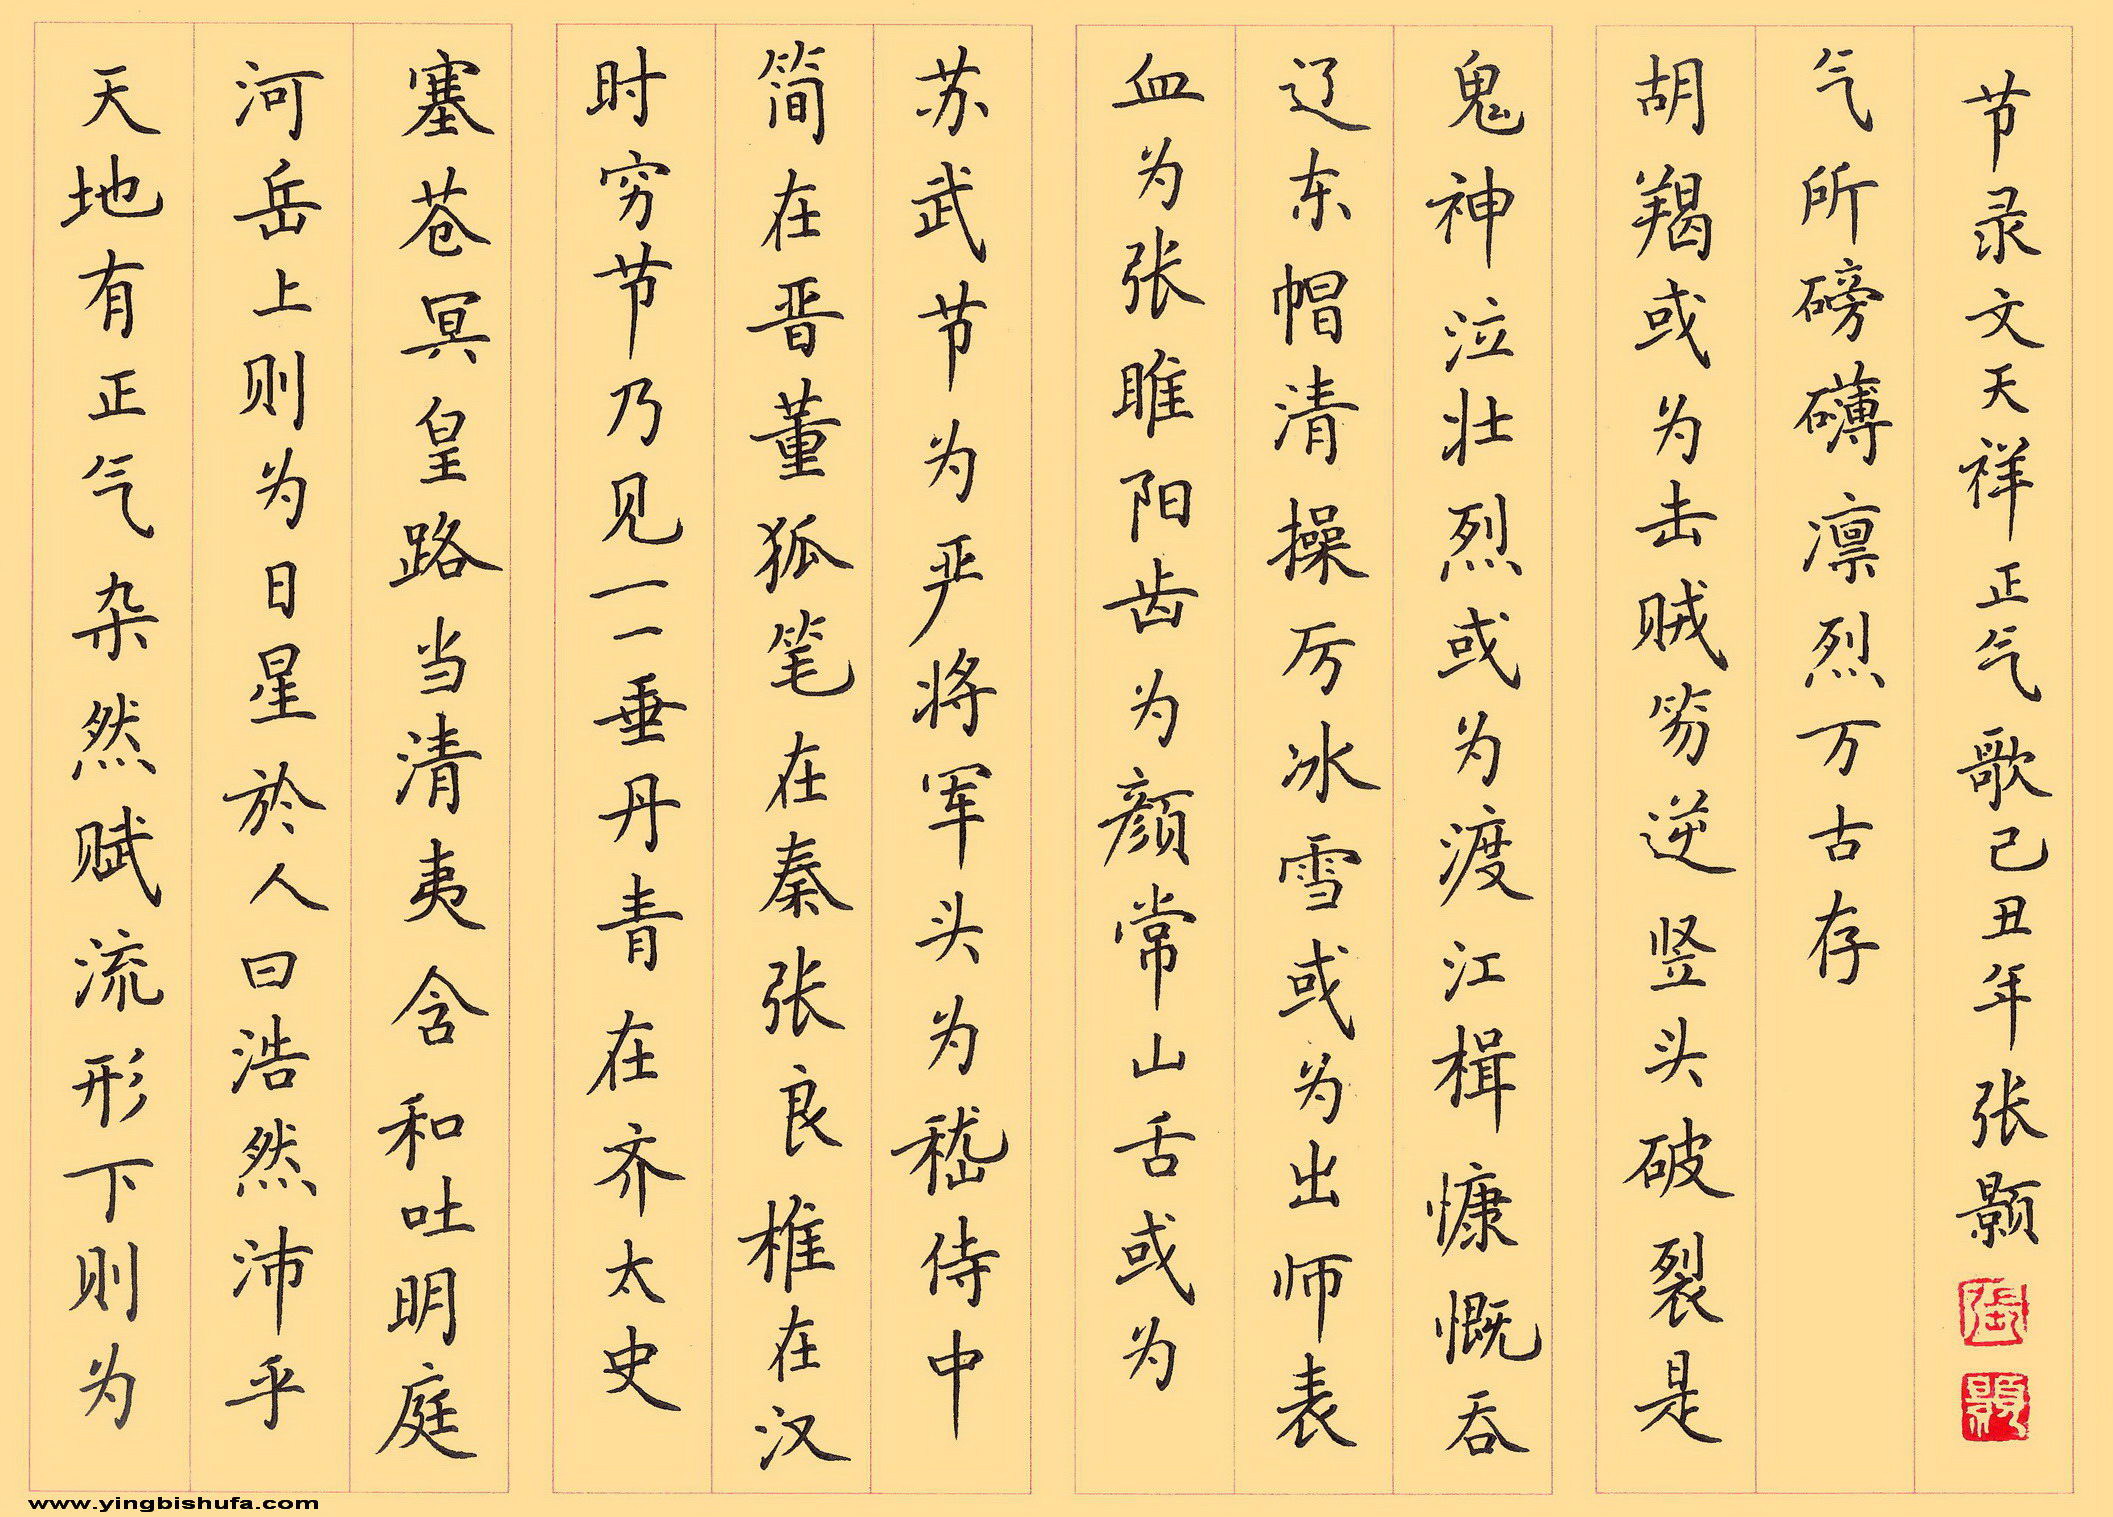 天地有正气杂然赋流形下则为
河岳上则为日星於人曰浩然沛乎
塞苍冥皇路当清夷含和吐明庭
时穷节乃见一一垂丹青在齐太史
简在晋董狐笔在秦张良椎在汉
苏武节为严将军头为嵇侍中
血为张睢阳齿为颜常山舌或为
辽东帽清操厉冰雪或为出师表
鬼神泣壮烈或为渡江楫慷慨吞
胡羯或为击贼笏逆竖头破裂是
气所磅礴凛烈万古存
节录文天祥正气歌己丑年张颢
张
颢
www.yingbishufa.com